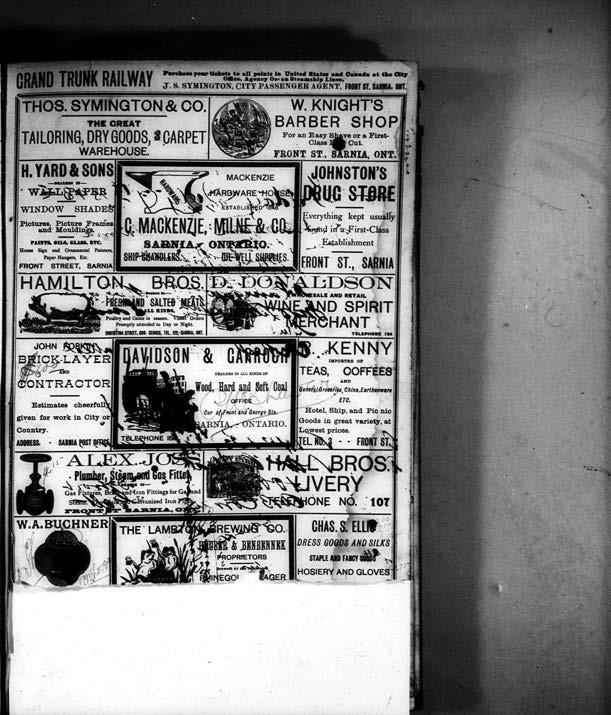 GRAND TRUNK RAILWAY
Purchase your tickets to all points in United States and Canada at the City
Office. Agency Ocean Steamship Lines.
J. S. SYMINGTON, CITY PASSENGER AGENT, FRONT ST. SARNIA. ONT.
THOS. SYMINGTON & CO.
THE GREAT
TAILORING, DRY GOODS, & CARPET
WAREHOUSE.
W. KNIGHT'S
BARBER SHOP
For an Easy Shave or a First-
Class Cut.
FRONT ST., SARNIA, ONT.
H. YARD & SONS
DEALERS IN
WALL PAPER
WINDOW SHADES
Pictures, Picture Frames
and Mouldings.
PAINTS, OILS, GLASS, ETC.
House Sign and Ornamental Painters,
Paper Hangers, Etc.
FRONT STREET, SARNIA
MACKENZIE
HARDWARE HOUSE
ESTABLISHED
C. MACKENZIE, MILNE & CO.
SARNIA, ONTARIO.
SHIP CHANDLERS. OIL WELL SUPPLIES.
JOHNSTON'S
DRUG STORE
Everything kept usually
found in a First-Class
Establishment
FRONT ST., SARNIA
HAMILTON BROS.
FRESH AND SALTED MEATS
ALL KINDS.
Poultry and Game in season. Orders
Promptly attended to Day or Night.
D. DONALDSON
WHOLESALE AND RETAIL
WINE AND SPIRIT
MERCHANT
TELEPHONE 154
JOHN
BRICK-LAYER
AND
CONTRACTOR
Estimates cheerfully
given for work in City or
Country.
ADDRESS. - SARNIA POST OFFICE
DAVIDSON & CARROLL
DEALERS IN ALL KINDS OF
Wood, Hard and Soft Coal
OFFICE
Cor of Front and George Sts.
SARNIA, - ONTARIO.
TELEPHONE
KENNY
IMPORTER OF
TEAS, COFFEES
AND
General Groceries, China, Earthenware
ETC.
Hotel, Ship, and Picnic
Goods in great variety, at
Lowest prices.
TEL. NO. 3 - - FRONT ST.
ALEX. JOS
Plumber, Steam and Gas Fitter
Gas Fixtures, Brass and Iron Fittings for Gas and
Steam. Galvanised Iron Pipe
FRONT ST SARNIA, ONT
HALL BROS.
LIVERY
TELEPHONE NO. 107
W. A. BUCHNER
THE LAMBTON BREWING CO.
PROPRIETORS
CHAS. S. ELLIS
DRESS GOODS AND SILKS
STAPLE AND FANCY GOODS
HOSIERY AND GLOVES